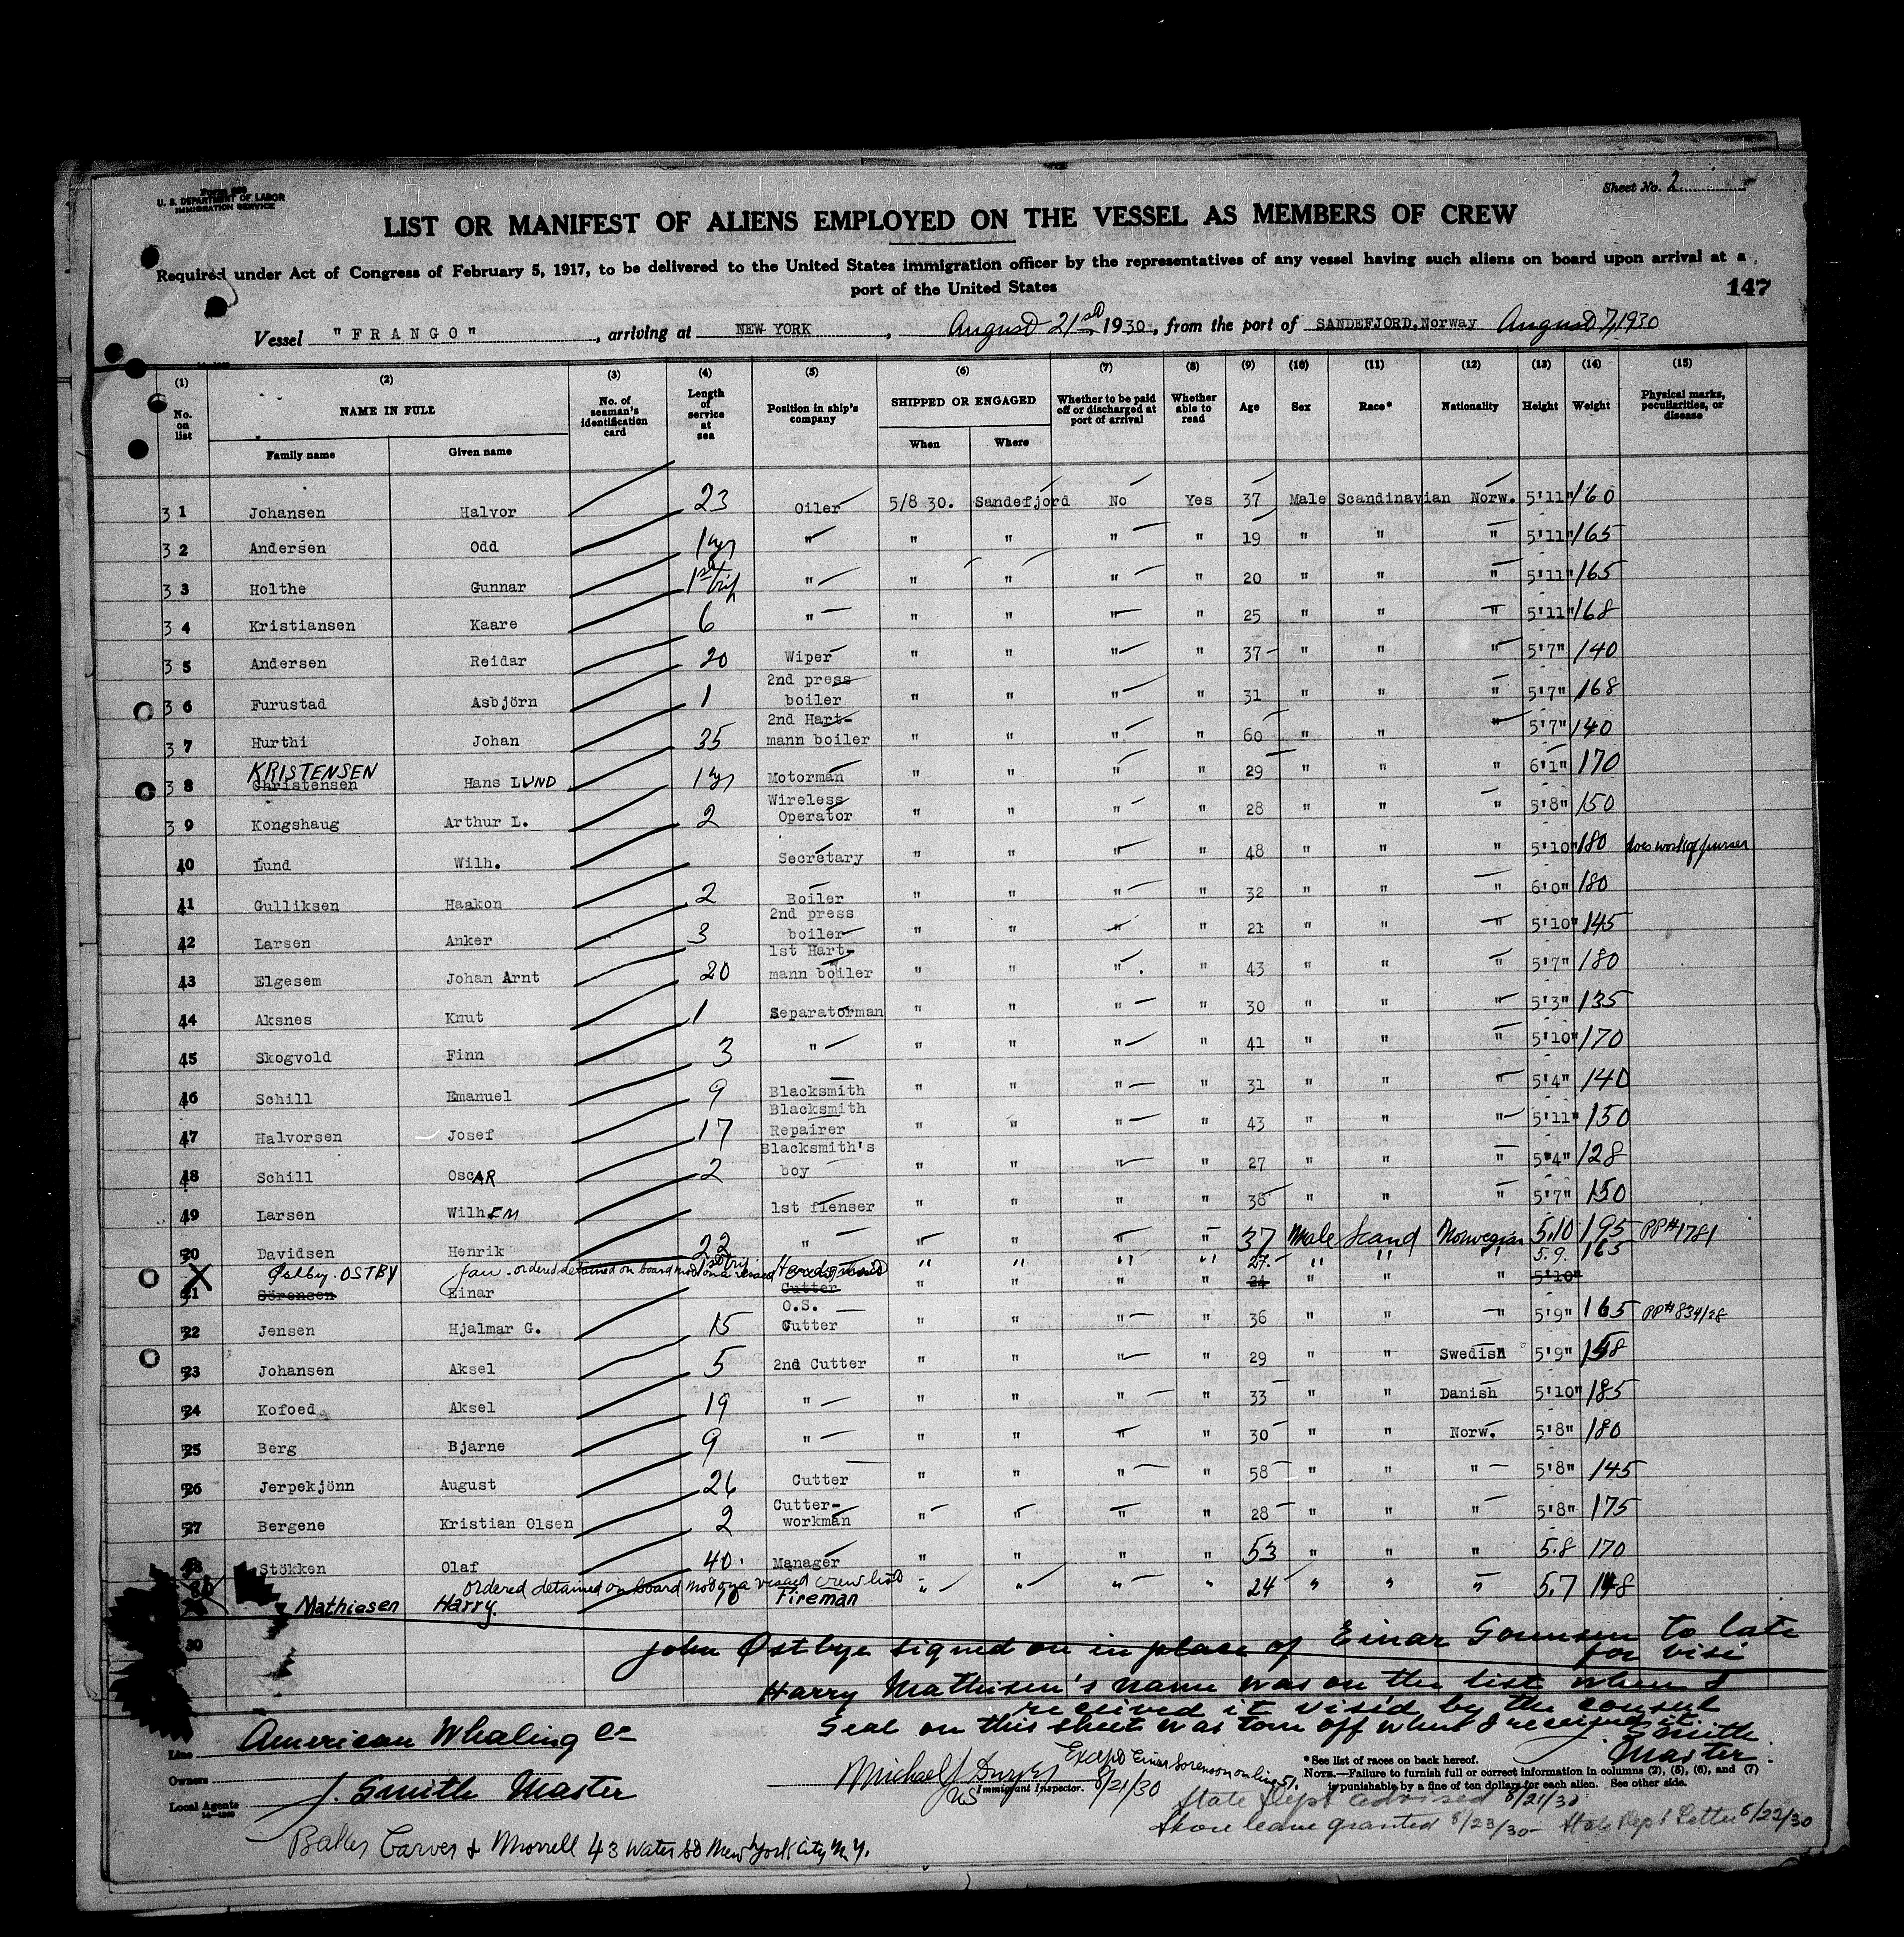 Form 680
U. S. DEPARTMENT OF LABOR
IMMIGRATION SERVICE
Sheet No. 2
LIST OR MANIFEST OF ALIENS EMPLOYED ON THE VESSEL AS MEMBERS OF CREW
Required under Act of Congress of February 5, 1917, to be delivered to the United States immigration officer by the representatives of any vessel having such aliens on board upon arrival at a
port of the United States
147
Vessel "FRANGO", arriving at NEW YORK, August 21st 1930, from the port of SANDEFJORD, Norway August 7, 1930
(1) (2) (3) (4) (5) (6) (7) (8) (9) (10) (11) (12) (13) (14) (15)
No. on list NAME IN FULL Family name Given name No. of seaman's identification card Length of service at sea Position in ship's company SHIPPED OR ENGAGED When Where Whether to be paid off or discharged at port of arrival Whether able to read Age Sex Race* Nationality Height Weight Physical marks, peculiarities, or disease
31 Johansen Halvor 23 Oiler 5/8 30. Sandefjord No Yes 37 Male Scandinavian Norw. 5'11" 160
32 Andersen Odd 1 yr " " " " " 19 " " " 5'11" 165
33 Holthe Gunnar 1st trip " " " " " 20 " " " 5'11" 165
34 Kristiansen Kaare 6 " " " " " 25 " " " 5'11" 168
35 Andersen Reidar 20 Wiper " " " " 37 " " " 5'7" 140
36 Furustad Asbjörn 1 2nd press boiler " " " " 31 " " " 5'7" 168
37 Hurthi Johan 35 2nd Hart-mann boiler " " " " 60 " " " 5'7" 140
38 KRISTENSEN Christensen Hans LUND 1 yr Motorman " " " " 29 " " " 6'1" 170
39 Kongshaug Arthur L. 2 Wireless Operator " " " " 28 " " " 5'8" 150
40 Lund Wilh. Secretary " " " " 48 " " " 5'10" 180 does work of purser
41 Gulliksen Haakon 2 Boiler " " " " 32 " " " 6'0" 180
42 Larsen Anker 3 2nd press boiler " " " " 21 " " " 5'10" 145
43 Elgesem Johan Arnt 20 1st Hart-mann boiler " " " " 43 " " " 5'7" 180
44 Aksnes Knut 1 Separatorman " " " " 30 " " " 5'3" 135
45 Skogvold Finn 3 " " " " " 41 " " " 5'10" 170
46 Schill Emanuel 9 Blacksmith " " " " 31 " " " 5'4" 140
47 Halvorsen Josef 17 Blacksmith Repairer " " " " 43 " " " 5'11" 150
48 Schill OscAR 2 Blacksmith's boy " " " " 27 " " " 5'4" 128
49 Larsen WilhEM 1st flenser " " " " 38 " " " 5'7" 150
50 Davidsen Henrik 22 " " " " " 37 Male Scand Norwegian 5.10 195 PP#1781
Østby. OSTBY ordered detained on board not on a visaed crew list " " " " 27. " " " 5.9. 165
51 Sörensen Einar Cutter " " " " 24 " " " 5'10"
52 Jensen Hjalmar G. 15 O.S. Cutter " " " " 36 " " " 5'9" 165 PP#834/28
53 Johansen Aksel 5 2nd Cutter " " " " 29 " " Swedish 5'9" 158
54 Kofoed Aksel 19 " " " " " 33 " " Danish 5'10" 185
55 Berg Bjarne 9 " " " " " 30 " " Norw. 5'8" 180
56 Jerpekjönn August 26 Cutter " " " " 58 " " " 5'8" 145
57 Bergene Kristian Olsen 2 Cutter-workman " " " " 28 " " " 5'8" 175
Stökken Olaf 40 Manager " " " " 53 " " " 5.8 170
ordered detained on board not on a visaed crew list
Mathiesen Harry. 10 Fireman " " " " 24 " " " 5.7 148
30
John Østbye signed on in place of Einar Sörensen to late
for visi
Harry Mathisen's name was on the list when I
received it vis'd by the consul
Seal on this sheet was torn off when I received it.
J. Smith
Master.
Line American Whaling Co
Owners
Local Agents J. Smith Master
Immigrant Inspector. 8/21/30
US
Except Einar Sorenson on line 51.
*See list of races on back hereof.
NOTE.—Failure to furnish full or correct information in columns (2), (5), (6), and (7)
is punishable by a fine of ten dollars for each alien. See other side.
State Dept advised 8/21/30
Shore leave granted 8/23/30 - State Dept Letter 8/22/30
Baker Carver & Morrell 43 Water St New York City N.Y.